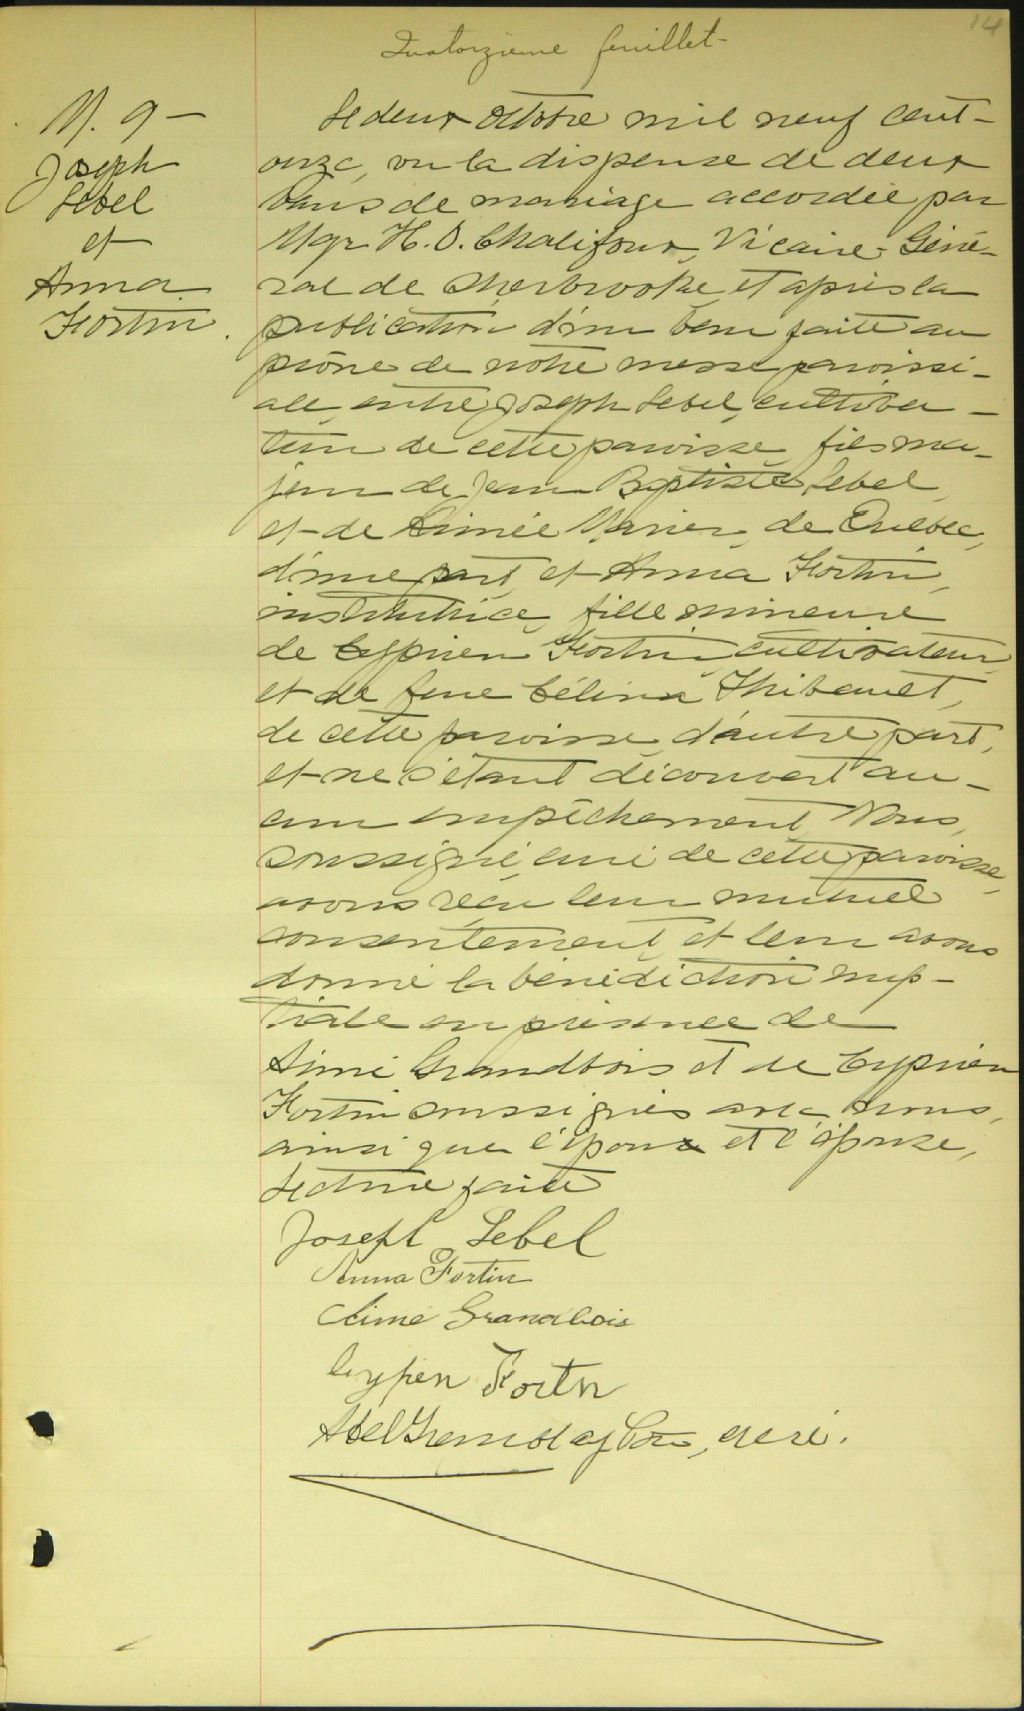 14
Quatorzième feuillet
M. 9 —
Joseph
Lebel
et
Anna
Fortin.
Le deux octobre mil neuf cent
onze, vu la dispense de deux
bans de mariage accordée par
Mgr H. O. Chalifoux, Vicaire-Géné-
ral de Sherbrooke et après la
publication d'un banc faite au
prône de notre messe paroissi-
ale, entre Joseph Lebel, cultiva-
teur de cette paroisse, fils ma-
jeur de Jean Baptiste Lebel,
et de Aimée, de Québec,
d'une part, et Anna Fortin,
institutrice, fille mineure
de Cyprien Fortin, cultivateur
et de feue Célina Thibault,
de cette paroisse, d'autre part,
et ne s'étant découvert au-
cun empêchement, Nous,
soussigné, curé de cette paroisse,
avons reçu leur mutuel
consentement, et leur avons
donné la bénédiction nup-
tiale en présence de
Aimé Grandbois et de Cyprien
Fortin soussignés avec nous,
ainsi que l'époux et l'épouse,
Lecture faite
Joseph Lebel
Anna Fortin
Aimé Grandbois
Cyprien Fortin
curé.